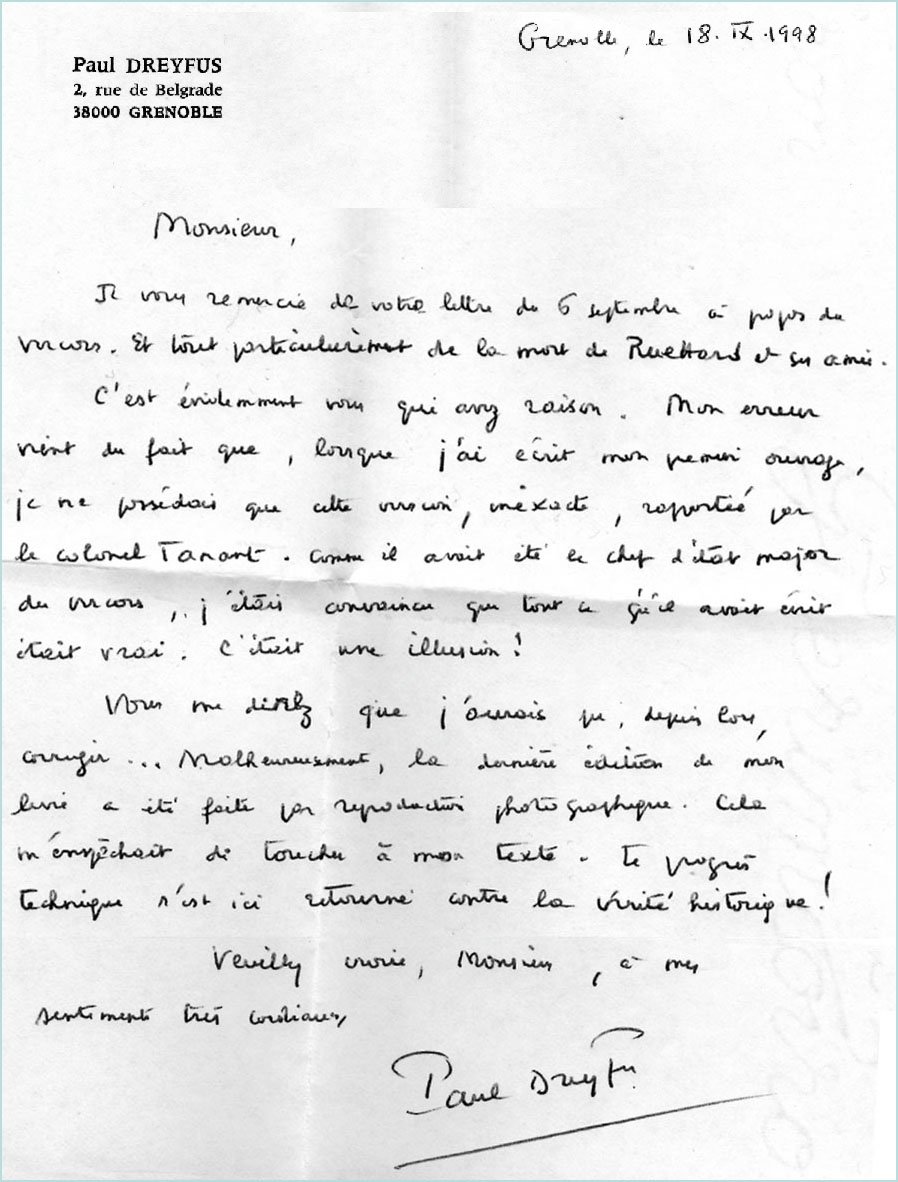 Grenoble, le 18.IX.1998
Paul DREYFUS
2, rue de Belgrade
38000 GRENOBLE
Monsieur,
Je vous remercie de votre lettre du 6 septembre à propos du
Vercors. Et tout particulièrement de la mort de Ruettard et ses amis.
C'est évidemment vous qui avez raison. Mon erreur
vient du fait que, lorsque j'ai écrit mon premier ouvrage,
je ne possédais que cette version, inexacte, rapportée par
le colonel Tanant. Comme il avait été le chef d'état major
du Vercors, j'étais convaincu que tout ce qu'il avait écrit
était vrai. C'était une illusion !
Vous me direz que j'aurais pu, depuis lors,
corriger ... Malheureusement, la dernière édition de mon
livre a été faite par reproduction photographique. Cela
m'empêchait de toucher à mon texte. Le progrès
technique s'est ici retourné contre la vérité historique !
Veuillez croire, Monsieur, à mes
sentiments très cordiaux,
Paul Dreyfus